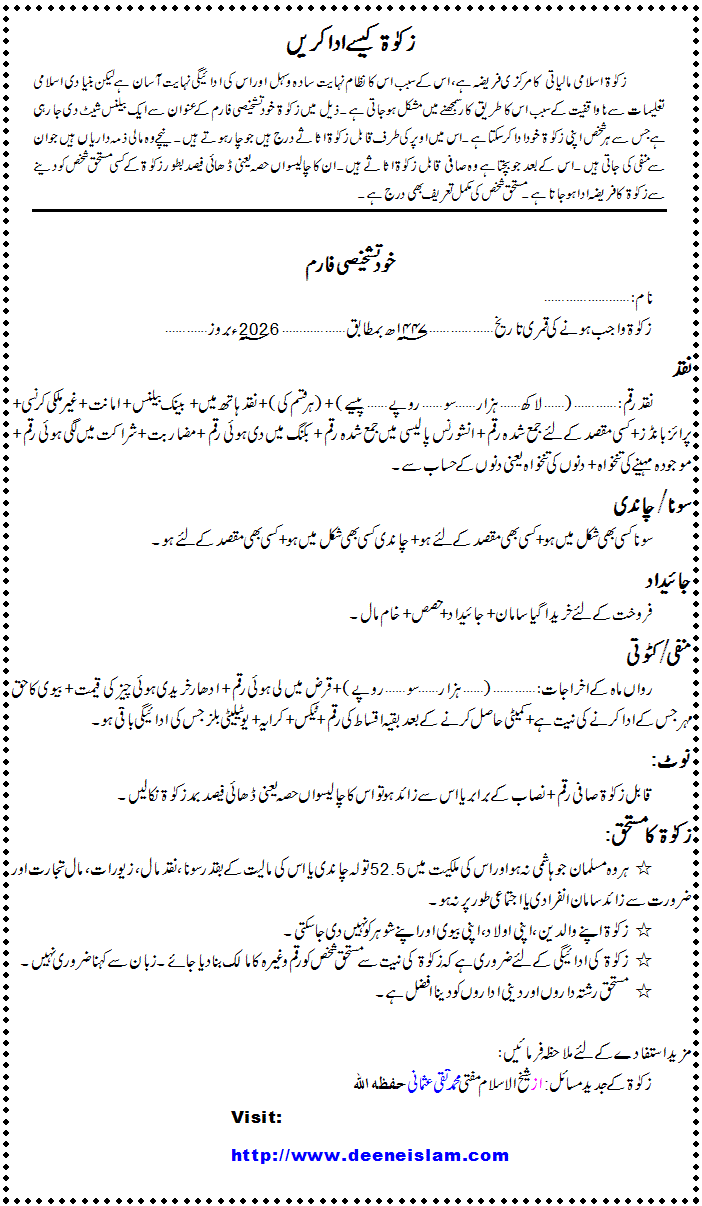 زکوٰۃ کیسے ادا کریں
زکوٰۃ اسلامی مالیاتی کا مرکزی فریضہ ہے، اس کے سبب اس کا نظام نہایت سادہ و سہل اور اس کی ادائیگی نہایت آسان ہے لیکن بنیادی اسلامی
تعلیمات سے ناواقفیت کے سبب اس کا طریق کار سمجھنے میں مشکل ہو جاتی ہے۔ ذیل میں زکوٰۃ خود تشخیصی فارم کے عنوان سے ایک بیلنس شیٹ دی جا رہی
ہے جس سے ہر شخص اپنی زکوٰۃ خود ادا کر سکتا ہے۔ اس میں اوپر کی طرف قابل زکوٰۃ اثاثے درج ہیں جو چار ہوتے ہیں۔ نیچے وہ مالی ذمہ داریاں ہیں جو ان
سے منفی کی جاتی ہیں۔ اس کے بعد جو بچتا ہے وہ صافی قابل زکوٰۃ اثاثے ہیں۔ ان کا چالیسواں حصہ یعنی ڈھائی فیصد بطور زکوٰۃ کے کسی مستحق شخص کو دینے
سے زکوٰۃ کا فریضہ ادا ہو جاتا ہے۔ مستحق شخص کی مکمل تعریف بھی درج ہے۔
خود تشخیصی فارم
نام:........................
زکوٰۃ واجب ہونے کی قمری تاریخ..................۱۴۴۷ھ بمطابق.................. 2026ء بروز............
نقد
نقد رقم:............(...... لاکھ...... ہزار......سو...... روپے...... پیسے)+ (ہر قسم کی)+ نقد ہاتھ میں+ بینک بیلنس+ امانت+ غیر ملکی کرنسی+
پرائز بانڈز+ کسی مقصد کے لئے جمع شدہ رقم+ انشورنس پالیسی میں جمع شدہ رقم+ بکنگ میں دی ہوئی رقم+ مضاربت+ شراکت میں لگی ہوئی رقم+
موجودہ مہینے کی تنخواہ+ دنوں کی تنخواہ یعنی دنوں کے حساب سے۔
سونا/چاندی
سونا کسی بھی شکل میں ہو+ کسی بھی مقصد کے لئے ہو+ چاندی کسی بھی شکل میں ہو+ کسی بھی مقصد کے لئے ہو۔
جائیداد
فروخت کے لئے خریدا گیا سامان+ جائیداد+ حصص+ خام مال۔
منفی/کٹوتی
رواں ماہ کے اخراجات:............(...... ہزار......سو...... روپے)+ قرض میں لی ہوئی رقم+ ادھار خریدی ہوئی چیز کی قیمت+ بیوی کا حق
مہر جس کے ادا کرنے کی نیت ہے+ کمیٹی حاصل کرنے کے بعد بقیہ اقساط کی رقم+ ٹیکس+ کرایہ+ یوٹیلیٹی بلز جس کی ادائیگی باقی ہو۔
نوٹ:
قابل زکوٰۃ صافی رقم+ نصاب کے برابر یا اس سے زائد ہو تو اس کا چالیسواں حصہ یعنی ڈھائی فیصد بمد زکوٰۃ نکالیں۔
زکوٰۃ کا مستحق:
☆ ہر وہ مسلمان جو ہاشمی نہ ہو اور اس کی ملکیت میں 52.5 تولہ چاندی یا اس کی مالیت کے بقدر سونا، نقد مال، زیورات، مال تجارت اور
ضرورت سے زائد سامان انفرادی یا اجتماعی طور پر نہ ہو۔
☆ زکوٰۃ اپنے والدین، اپنی اولاد، اپنی بیوی اور اپنے شوہر کو نہیں دی جا سکتی۔
☆ زکوٰۃ کی ادائیگی کے لئے ضروری ہے کہ زکوٰۃ کی نیت سے مستحق شخص کو رقم وغیرہ کا مالک بنا دیا جائے۔ زبان سے کہنا ضروری نہیں۔
☆ مستحق رشتہ داروں اور دینی اداروں کو دینا افضل ہے۔
مزید استفادے کے لئے ملاحظہ فرمائیں:
زکوٰۃ کے جدید مسائل: از شیخ الاسلام مفتی محمد تقی عثمانی حفظه الله
Visit:
http://www.deeneislam.com